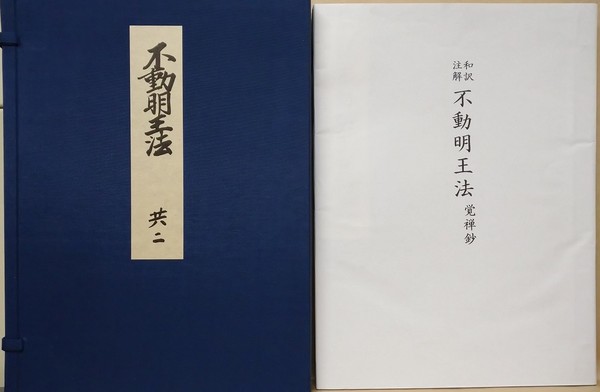 不動明王法
共二
和訳
注解
不動明王法
覚禅鈔